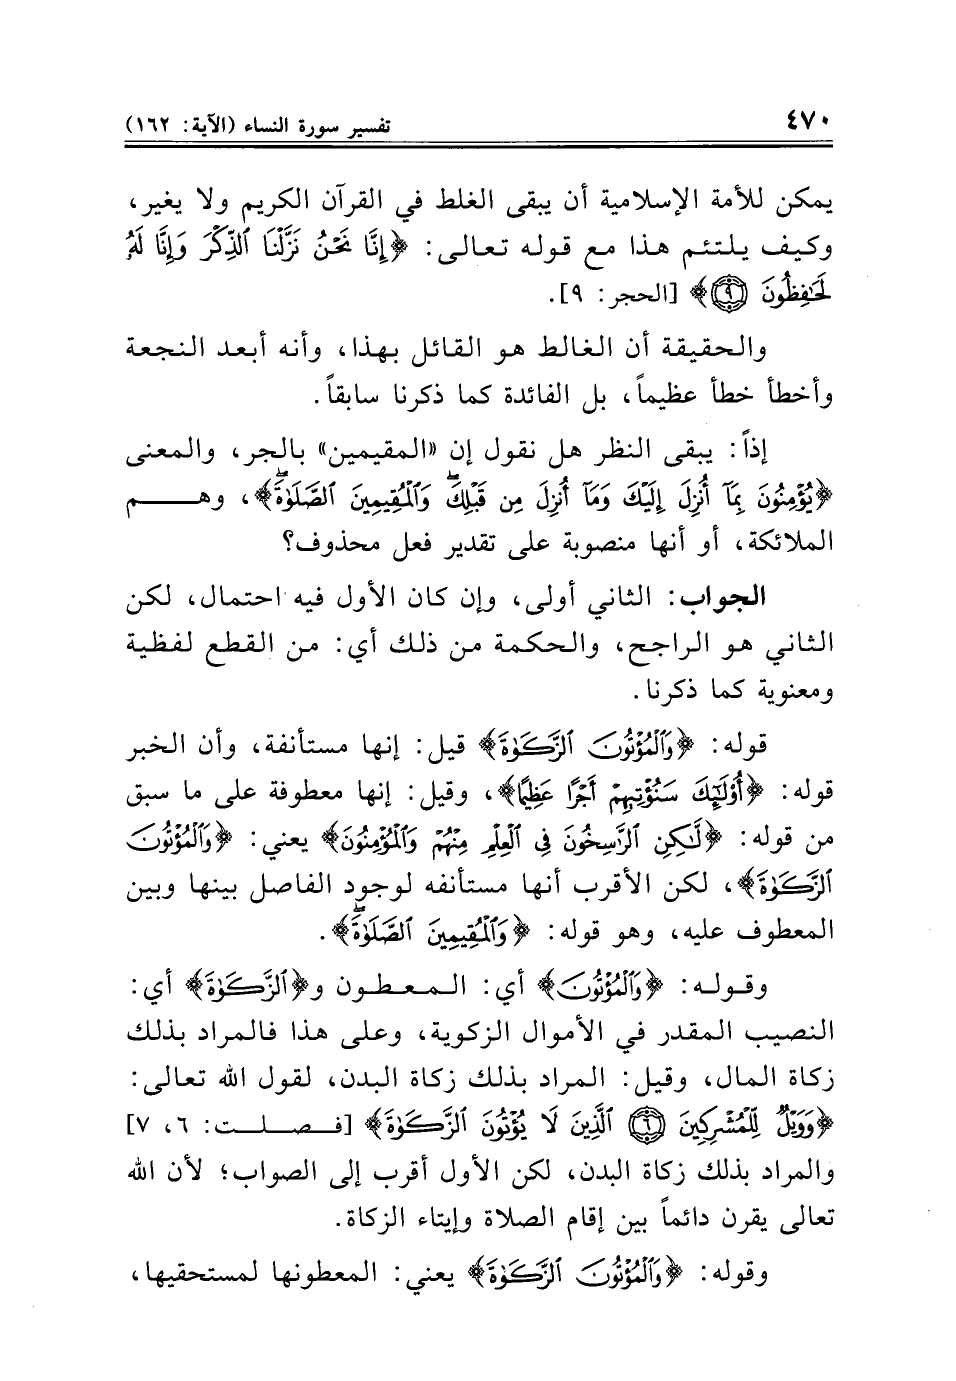 ٤٧٠
تفسير سورة النساء (الآية: ١٦٢)
يمكن للأمة الإسلامية أن يبقى الغلط في القرآن الكريم ولا يغير،
وكيف يلتئم هذا مع قوله تعالى: ﴿إِنَّا نَحْنُ نَزَّلْنَا ٱلذِّكْرَ وَإِنَّا لَهُۥ
لَحَٰفِظُونَ ۝٩﴾ [الحجر: ٩].
والحقيقة أن الغالط هو القائل بهذا، وأنه أبعد النجعة
وأخطأ خطأ عظيماً، بل الفائدة كما ذكرنا سابقاً.
إذاً: يبقى النظر هل نقول إن «المقيمين» بالجر، والمعنى
﴿يُؤْمِنُونَ بِمَآ أُنزِلَ إِلَيْكَ وَمَآ أُنزِلَ مِن قَبْلِكَۖ وَٱلْمُقِيمِينَ ٱلصَّلَوٰةَۖ﴾، وهم
الملائكة، أو أنها منصوبة على تقدير فعل محذوف؟
الجواب: الثاني أولى، وإن كان الأول فيه احتمال، لكن
الثاني هو الراجح، والحكمة من ذلك أي: من القطع لفظية
ومعنوية كما ذكرنا.
قوله: ﴿وَٱلْمُؤْتُونَ ٱلزَّكَوٰةَ﴾ قيل: إنها مستأنفة، وأن الخبر
قوله: ﴿أُوْلَٰٓئِكَ سَنُؤْتِيهِمْ أَجْرًا عَظِيمًا﴾، وقيل: إنها معطوفة على ما سبق
من قوله: ﴿لَّٰكِنِ ٱلرَّٰسِخُونَ فِى ٱلْعِلْمِ مِنْهُمْ وَٱلْمُؤْمِنُونَ﴾ يعني: ﴿وَٱلْمُؤْتُونَ
ٱلزَّكَوٰةَ﴾، لكن الأقرب أنها مستأنفه لوجود الفاصل بينها وبين
المعطوف عليه، وهو قوله: ﴿وَٱلْمُقِيمِينَ ٱلصَّلَوٰةَۖ﴾.
وقوله: ﴿وَٱلْمُؤْتُونَ﴾ أي: المعطون و﴿ٱلزَّكَوٰةَ﴾ أي:
النصيب المقدر في الأموال الزكوية، وعلى هذا فالمراد بذلك
زكاة المال، وقيل: المراد بذلك زكاة البدن، لقول الله تعالى:
﴿وَوَيْلٌ لِّلْمُشْرِكِينَ ۝٦ ٱلَّذِينَ لَا يُؤْتُونَ ٱلزَّكَوٰةَ﴾ [فصلت: ٦، ٧]
والمراد بذلك زكاة البدن، لكن الأول أقرب إلى الصواب؛ لأن الله
تعالى يقرن دائماً بين إقام الصلاة وإيتاء الزكاة.
وقوله: ﴿وَٱلْمُؤْتُونَ ٱلزَّكَوٰةَ﴾ يعني: المعطونها لمستحقيها،